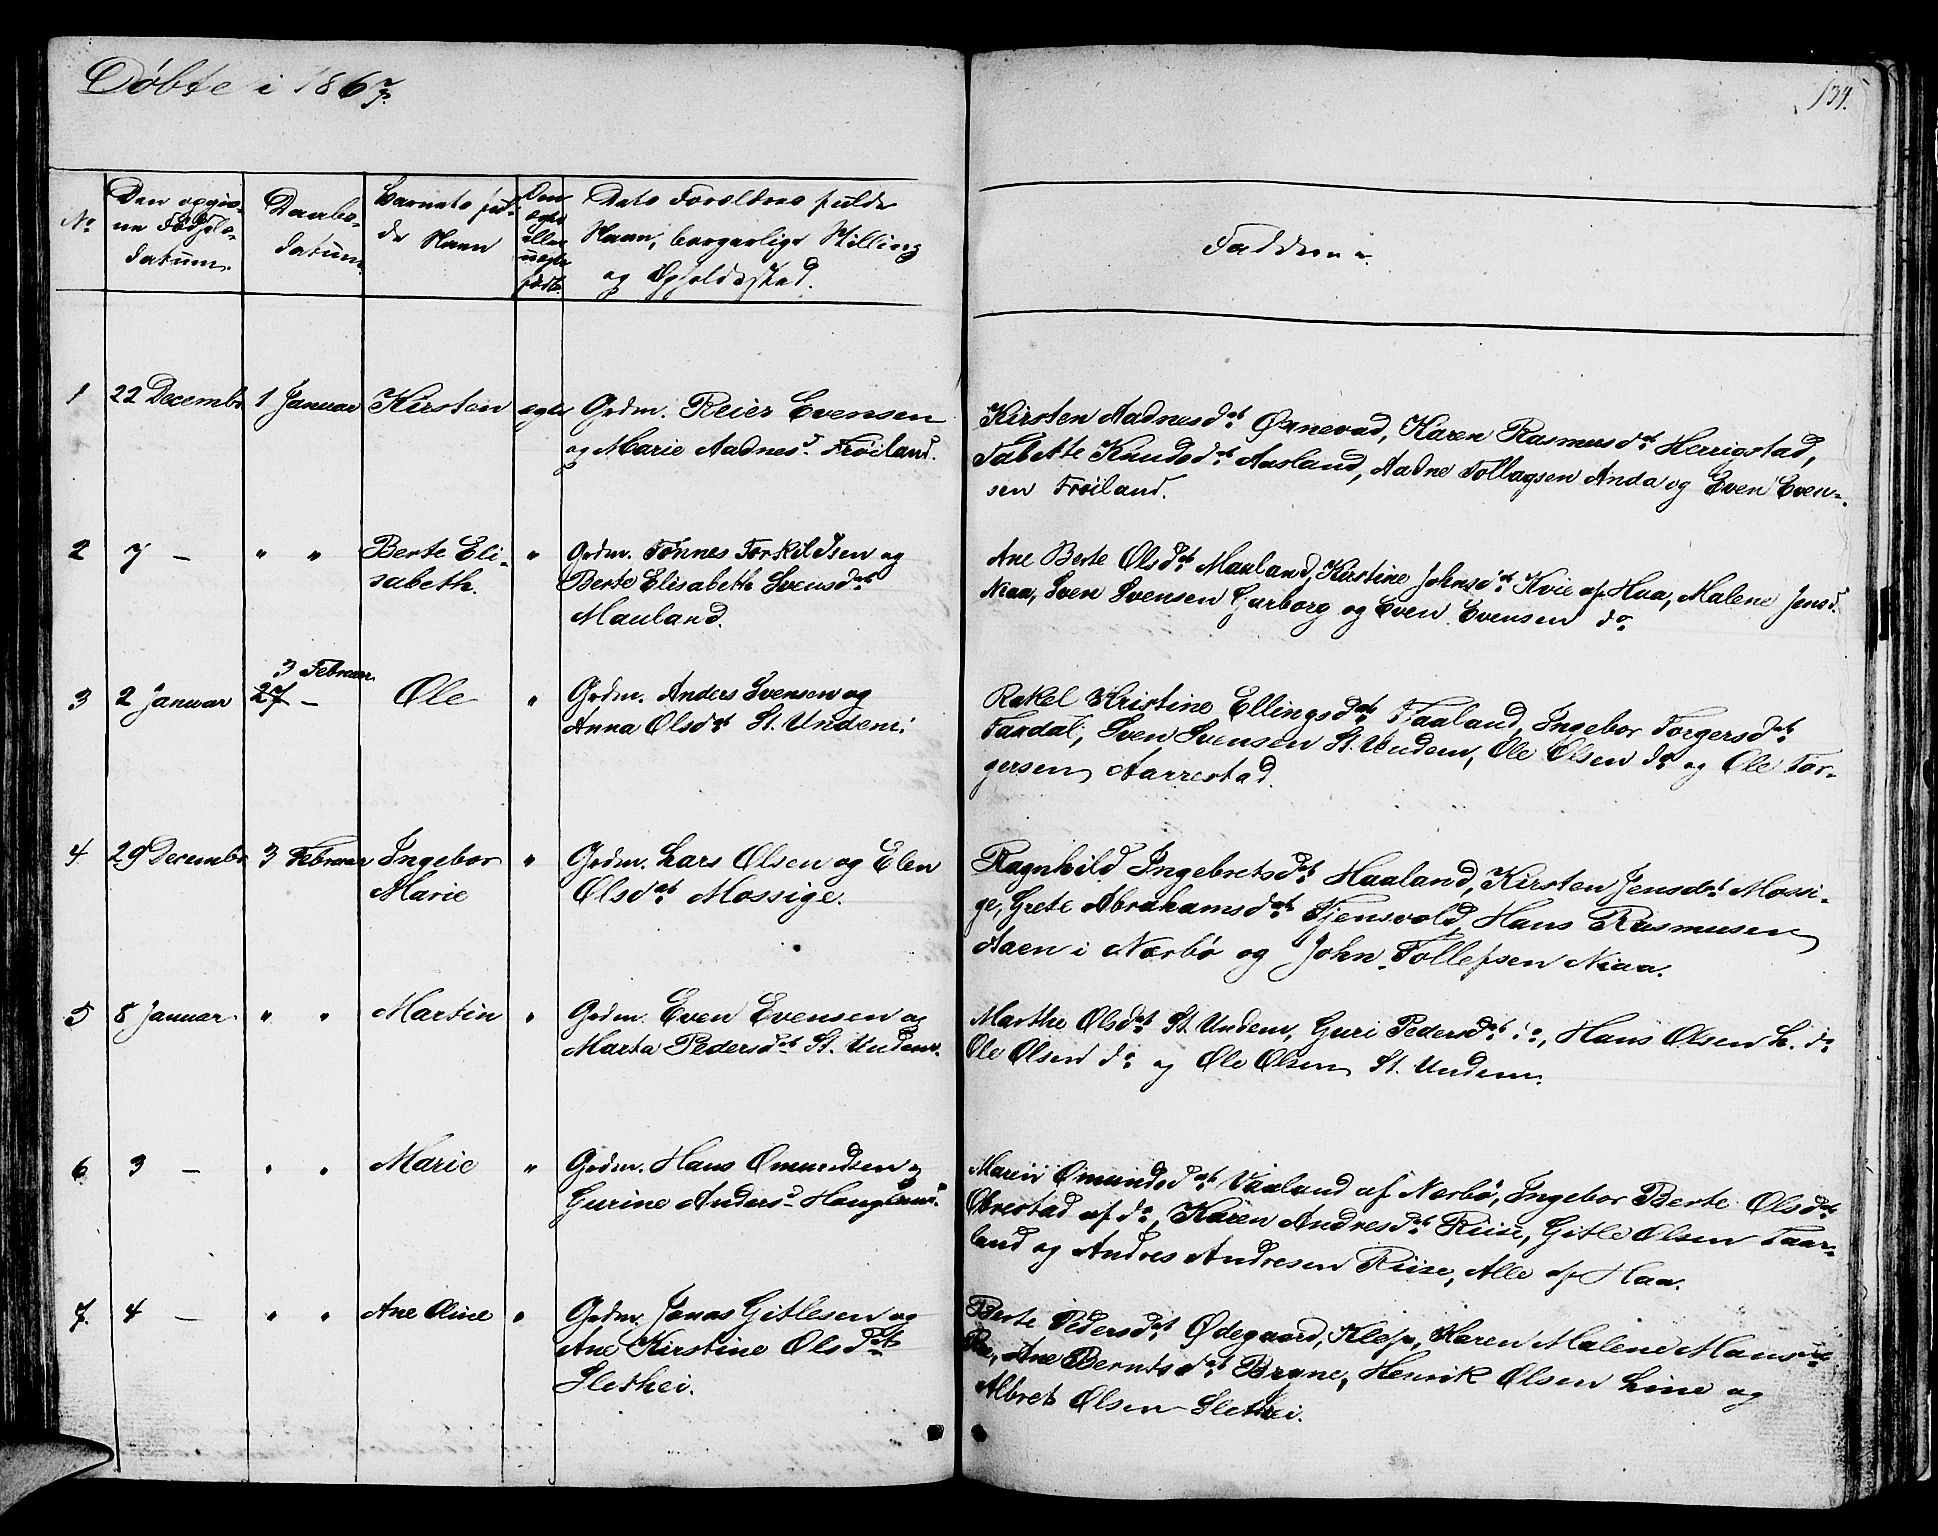 Døbte i 1867.
134.
No
Den opgiv-
ne Fødsels-
datum.
Daabs-
datum.
Barnets ful-
de Navn
Om
ægte
eller
uegte
født.
Dets Forældres fulde
Navn, borgerlige Stilling
og Opholdssted.
Faddere.
1
22 Decembr
1 Januar
Kirsten
ægte
Grdm. Reier Evensen
og Marie Aadnesd. Frøiland.
Kirsten Aadnesdat. Ørnevad, Karen Rasmusdat. Herrigstad,
Tabette Knudsdat. Aasland, Aadne Tollagsen Anda og Even Even-
sen Frøiland.
2
7 —
" "
Berte Eli-
sabeth.
"
Grdm. Tønnes Torkildsen og
Berte Elisabeth Svensdat.
Mauland.
Ane Berte Olsdat. Mauland, Kirstine Johnsdat. Kvie af Haa, Malene Jensd.
Niaa, Sven Svensen Gjurborg og Even Evensen do.
3
2 Januar
3 Februar
27 —
Ole
"
Grdm. Anders Svensen og
Anna Olsdat. St. Undem.
Rakel Kristine Ellingsdat. Taaland, Ingebor Torgersdat.
Taxdal, Sven Svensen St. Undem, Ole Olsen do. og Ole Tor-
gersen Aarrestad.
4
29 Decembr
3 Februar
Ingebor
Marie
"
Grdm. Lars Olsen og Elen
Olsdat. Mossige.
Ragnhild Ingebretsdat. Haaland, Kirsten Jensdat. Mossi-
ge, Grete Abrahamsdat. Tjensvold, Hans Rasmusen
Aaen i Nærbø og John Tollefsen Niaa.
5
8 Januar.
" "
Martin
"
Grdm. Even Evensen og
Marta Pedersdat. St. Undem.
Marthe Olsdat. St. Undem, Guri Pedersdat. do., Hans Olsen L. do.
Ole Olsen do. og Ole Olsen St. Undem.
6
3 —
" "
Marie
"
Grdm. Hans Omundsen og
Gurine Andersd. Haugland.
Maren Omundsdat. Vaaland af Nærbø, Ingebor Berte Olsdat.
Obrestad af do., Karen Andresdat. Riise, Gitle Olsen Taar-
land og Andres Andresen Riise, Alle af Haa.
7.
4 —
" "
Ane Oline
"
Grdm. Jonas Gitlesen og
Ane Kirstine Olsdat.
Slethei.
Berte Pedersdat. Ødegaard, Klep, Karen Malene Hansdat.
Roe, Ane Berntsdat. Bryne, Henrik Olsen Line og
Albret Olsen Slethei.